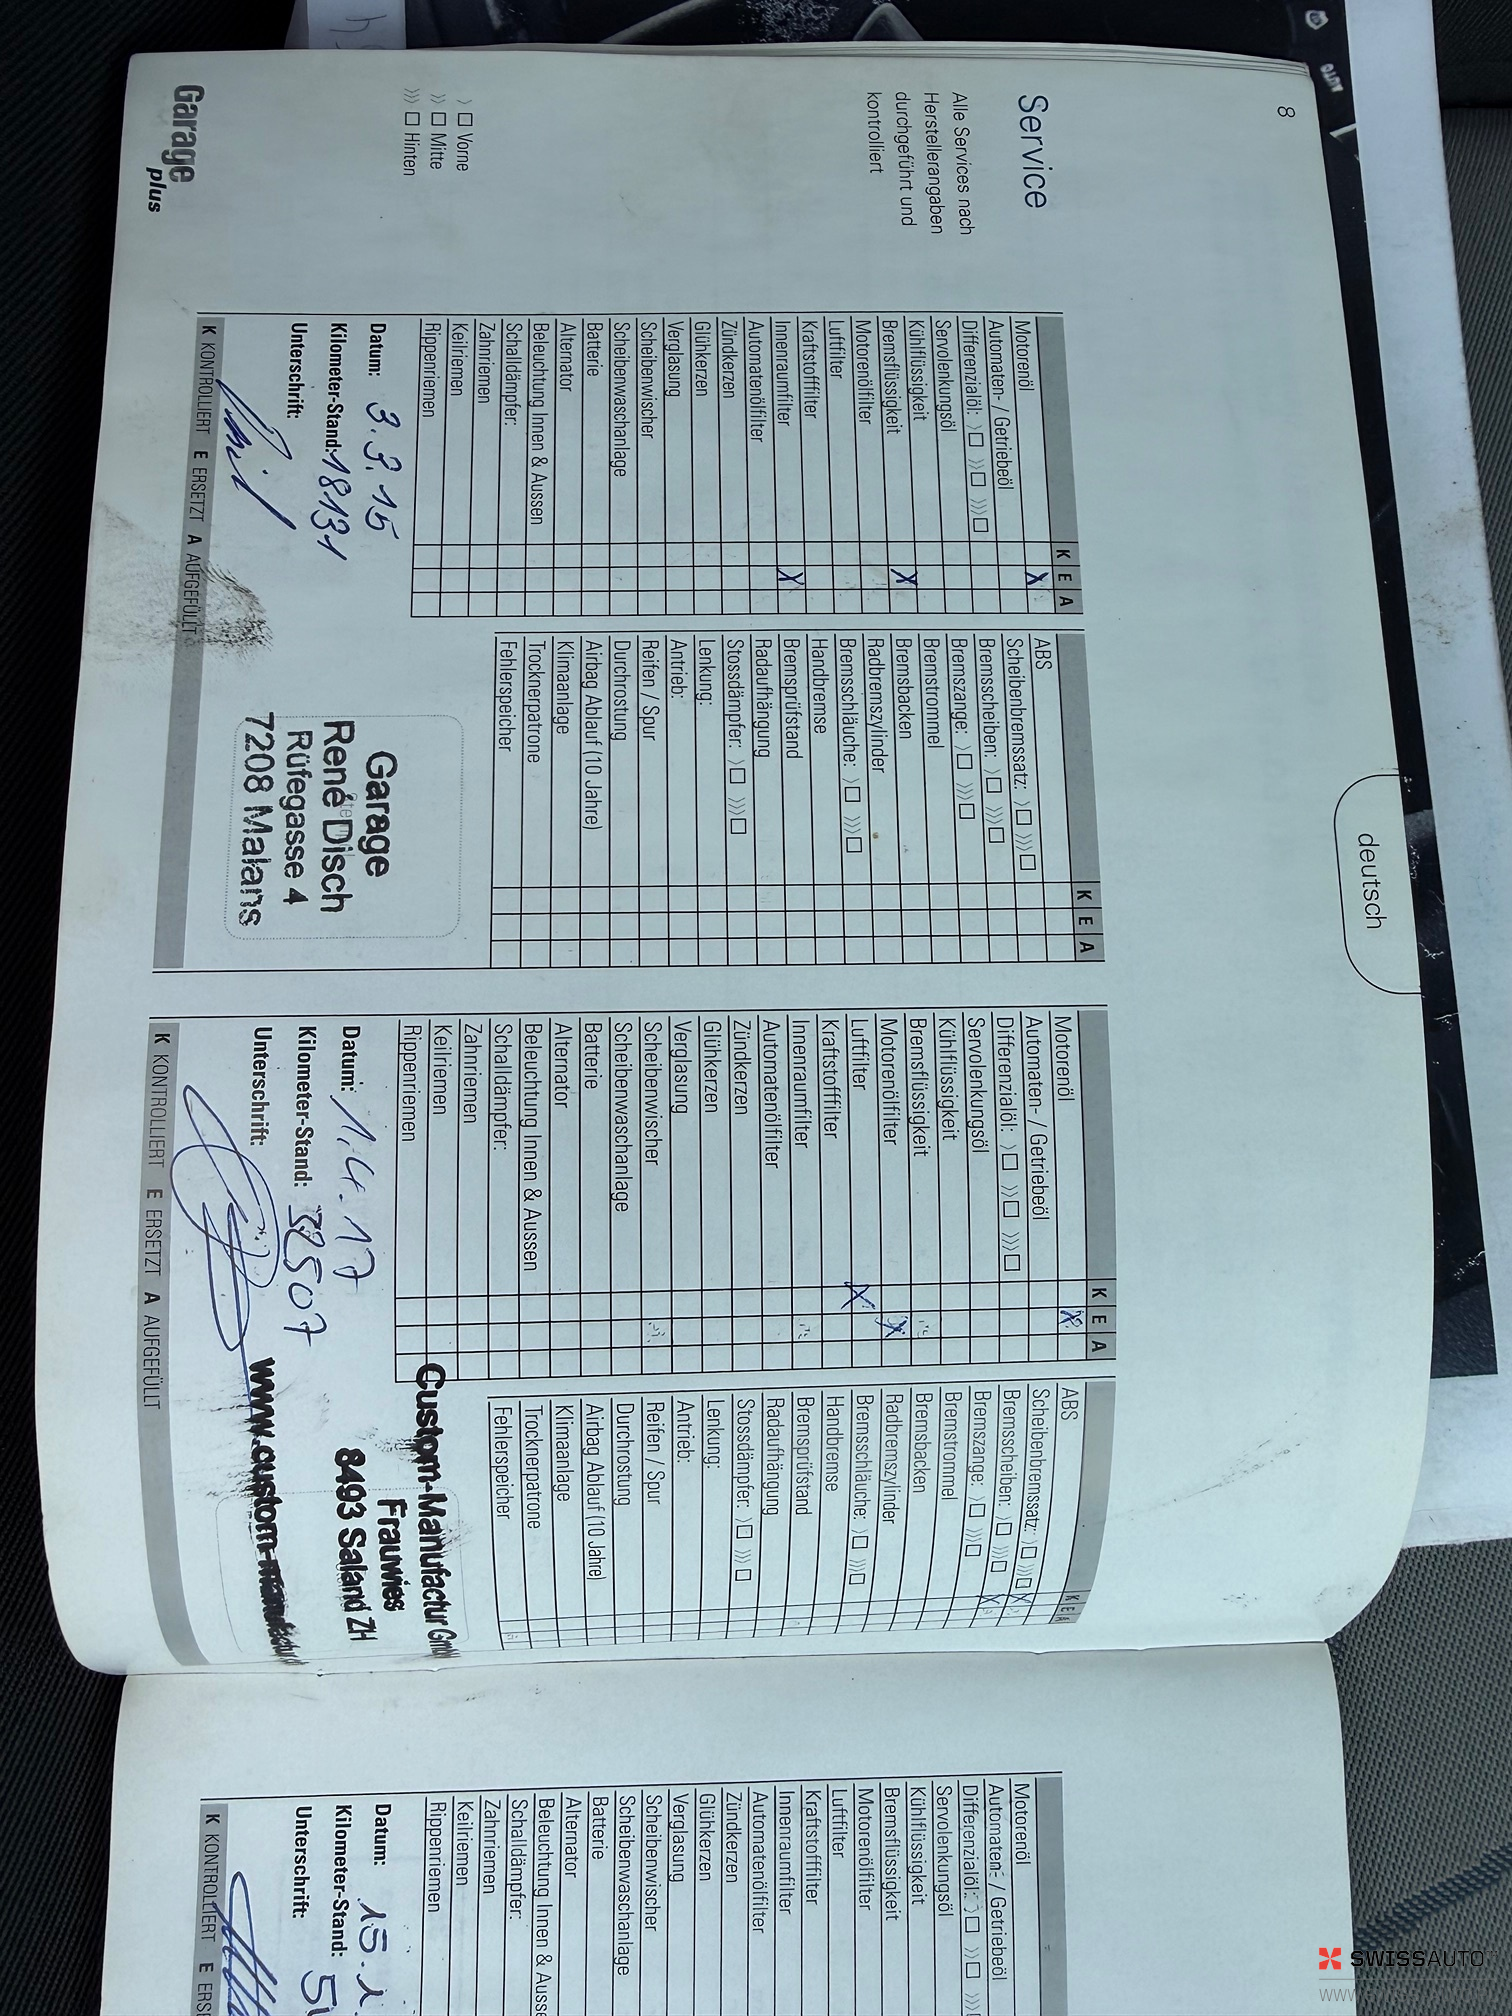 8
deutsch
Service
Alle Services nach
Herstellerangaben
durchgeführt und
kontrolliert
〉 □ Vorne
〉〉 □ Mitte
〉〉〉 □ Hinten
Garage
plus
K E A
Motorenöl X
Automaten- / Getriebeöl
Differenzialöl: 〉□ 〉〉□ 〉〉〉□
Servolenkungsöl
Kühlflüssigkeit
Bremsflüssigkeit X
Motorenölfilter
Luftfilter
Kraftstofffilter
Innenraumfilter X
Automatenölfilter
Zündkerzen
Glühkerzen
Verglasung
Scheibenwischer
Scheibenwaschanlage
Batterie
Alternator
Beleuchtung Innen & Aussen
Schalldämpfer:
Zahnriemen
Keilriemen
Rippenriemen
Datum: 3.3.15
Kilometer-Stand: 18131
Unterschrift:
K KONTROLLIERT E ERSETZT A AUFGEFÜLLT
K E A
ABS
Scheibenbremssatz: 〉□ 〉〉〉□
Bremsscheiben: 〉□ 〉〉〉□
Bremszange: 〉□ 〉〉〉□
Bremstrommel
Bremsbacken
Radbremszylinder
Bremsschläuche: 〉□ 〉〉〉□
Handbremse
Bremsprüfstand
Radaufhängung
Stossdämpfer: 〉□ 〉〉〉□
Lenkung:
Antrieb:
Reifen / Spur
Durchrostung
Airbag Ablauf (10 Jahre)
Klimaanlage
Trocknerpatrone
Fehlerspeicher
Garage
René Disch
Rüfegasse 4
7208 Malans
K E A
Motorenöl X
Automaten- / Getriebeöl
Differenzialöl: 〉□ 〉〉□ 〉〉〉□
Servolenkungsöl
Kühlflüssigkeit
Bremsflüssigkeit
Motorenölfilter X
Luftfilter X
Kraftstofffilter
Innenraumfilter
Automatenölfilter
Zündkerzen
Glühkerzen
Verglasung
Scheibenwischer
Scheibenwaschanlage
Batterie
Alternator
Beleuchtung Innen & Aussen
Schalldämpfer:
Zahnriemen
Keilriemen
Rippenriemen
Datum: 1.4.17
Kilometer-Stand: 32507
Unterschrift:
K KONTROLLIERT E ERSETZT A AUFGEFÜLLT
K E A
ABS
Scheibenbremssatz: 〉□ 〉〉〉□ X
Bremsscheiben: 〉□ 〉〉〉□ X
Bremszange: 〉□ 〉〉〉□
Bremstrommel
Bremsbacken
Radbremszylinder
Bremsschläuche: 〉□ 〉〉〉□
Handbremse
Bremsprüfstand
Radaufhängung
Stossdämpfer: 〉□ 〉〉〉□
Lenkung:
Antrieb:
Reifen / Spur
Durchrostung
Airbag Ablauf (10 Jahre)
Klimaanlage
Trocknerpatrone
Fehlerspeicher
Custom-Manufactur GmbH
Frauwies
8493 Saland ZH
Motorenöl
Automaten- / Getriebeöl
Differenzialöl: 〉□ 〉〉□
Servolenkungsöl
Kühlflüssigkeit
Bremsflüssigkeit
Motorenölfilter
Luftfilter
Kraftstofffilter
Innenraumfilter
Automatenölfilter
Zündkerzen
Glühkerzen
Verglasung
Scheibenwischer
Scheibenwaschanlage
Batterie
Alternator
Beleuchtung Innen & Ausse
Schalldämpfer:
Zahnriemen
Keilriemen
Rippenriemen
Datum: 15.1.
Kilometer-Stand: 5
Unterschrift:
K KONTROLLIERT E ERS
SWISSAUTO
www.